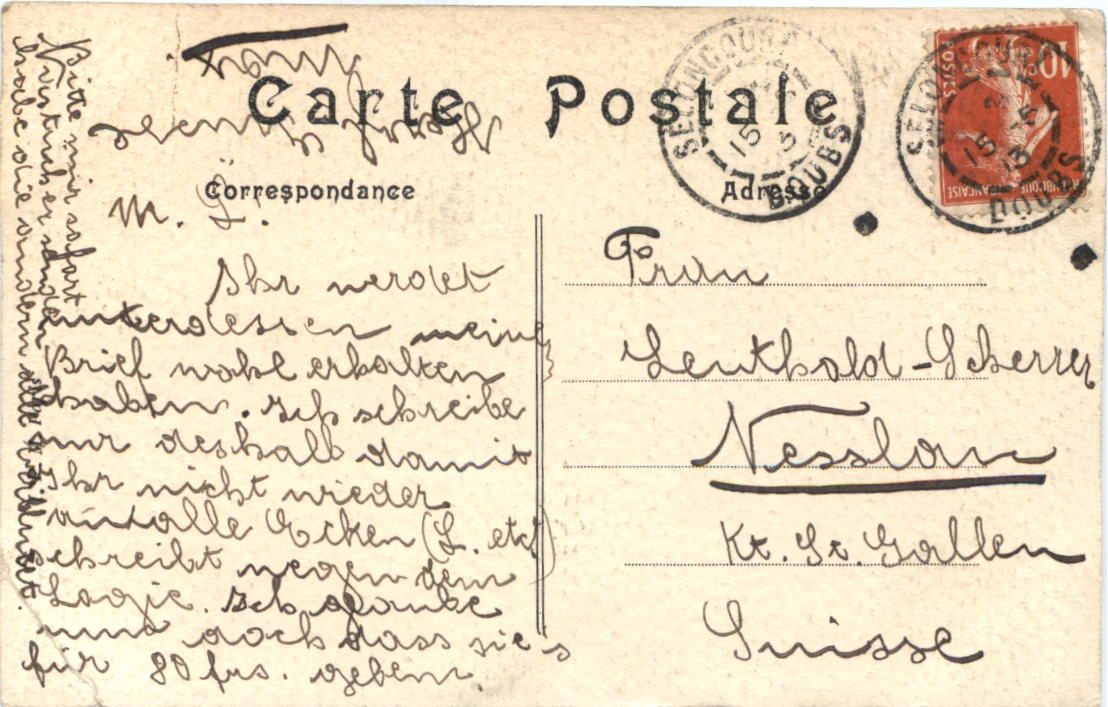 Carte Postale
Correspondance
Adresse
M. L.
Ihr werdet
unterdessen meine
Brief wohl erhalten
haben. Ich schreibe
nur deshalb damit
Ihr nicht wieder
an alle Ecken (L. etc)
schreibt wegen dem
Logie. Ich glaube
nun doch dass sie's
für 80 frs. geben.
Bitte mir sofort
habe die andern alle
Frau
Leuthold-Scherrer
Nesslau
Kt. St. Gallen
Suisse
SELONCOURT
15 3
13
DOUBS
SELONCOURT
15 3
13
DOUBS
10
POSTES
REPUBLIQUE FRANÇAISE